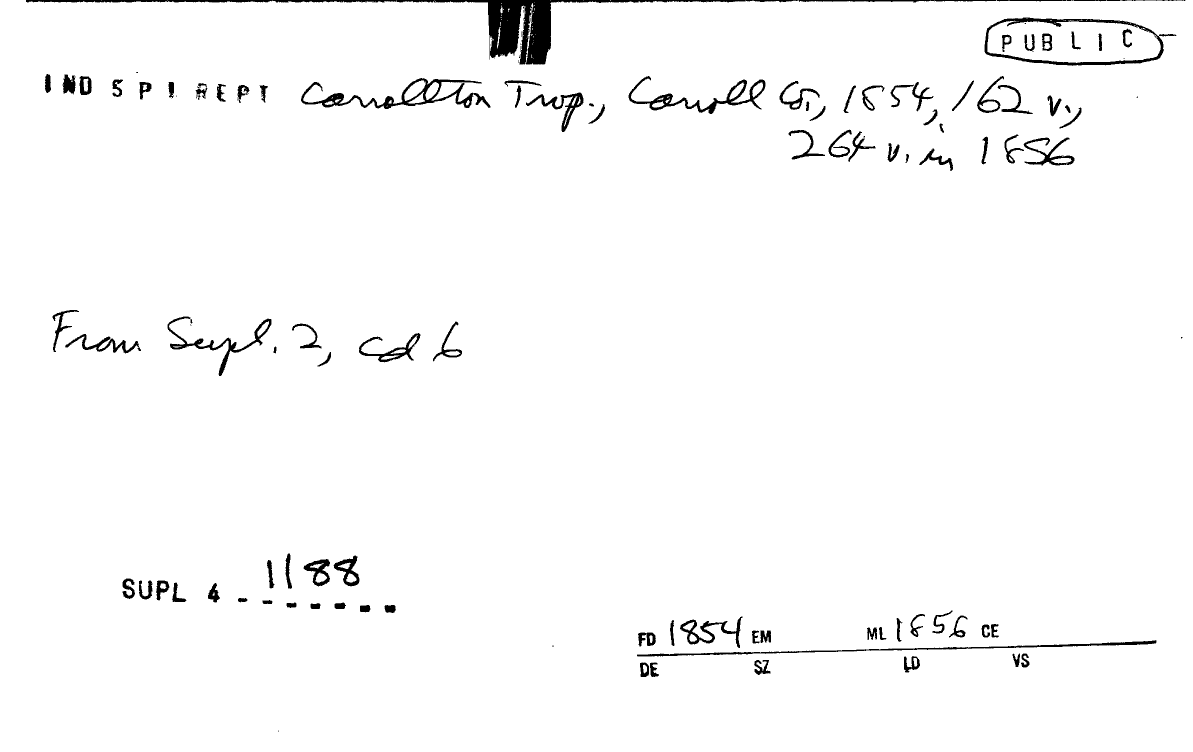 PUBLIC
IND SPI REPT Carrollton Twp., Carroll Co., 1854, 162 v.,
264 v. in 1856
From Supl. 2, cd 6
SUPL 4 - 1188
FD 1854 EM ML 1856 CE
DE SZ LD VS